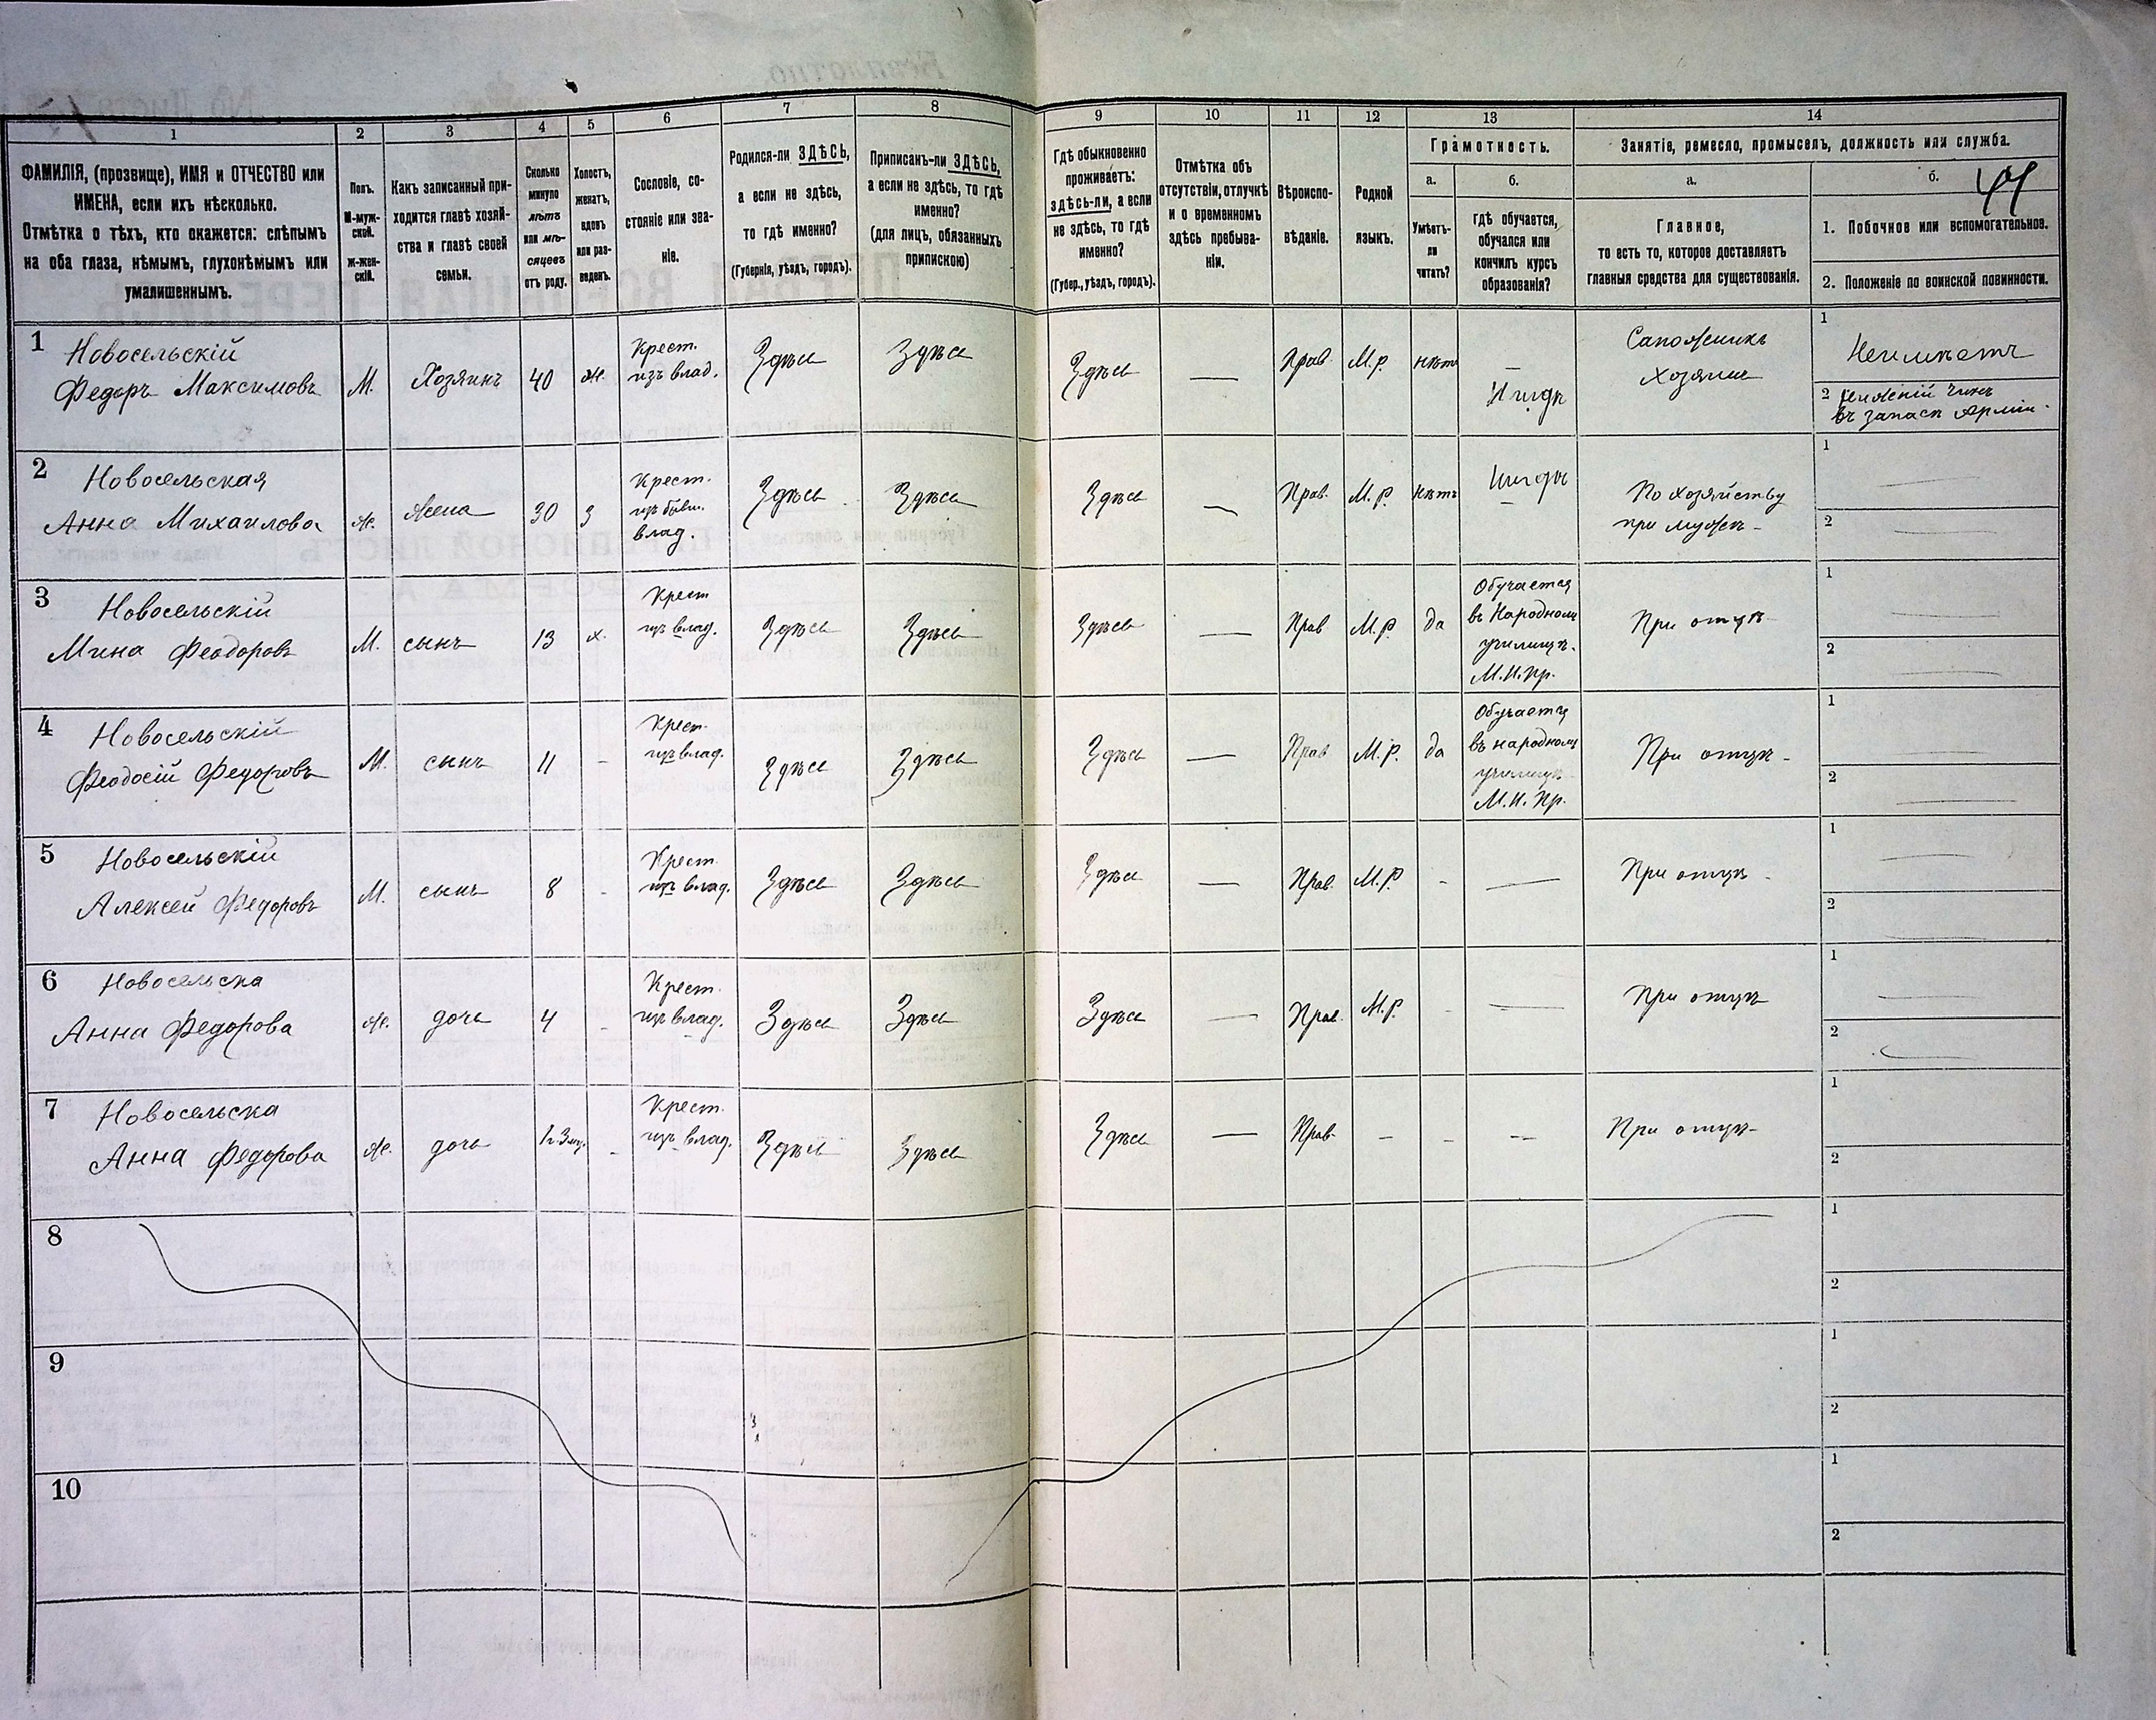 44
1 2 3 4 5 6 7 8 9 10 11 12 13 14
ФАМИЛІЯ, (прозвище), ИМЯ и ОТЧЕСТВО или
ИМЕНА, если ихъ нѣсколько.
Отмѣтка о тѣхъ, кто окажется: слѣпымъ
на оба глаза, нѣмымъ, глухонѣмымъ или
умалишеннымъ.
Полъ.
М-муж-
ской.
Ж-жен-
скій.
Какъ записанный при-
ходится главѣ хозяй-
ства и главѣ своей
семьи.
Сколько
минуло
лѣтъ
или мѣ-
сяцевъ
отъ роду.
Холостъ,
женатъ,
вдовъ
или раз-
веденъ.
Сословіе, со-
стояніе или зва-
ніе.
Родился-ли ЗДѢСЬ,
а если не здѣсь,
то гдѣ именно?
(Губернія, уѣздъ, городъ).
Приписанъ-ли ЗДѢСЬ,
а если не здѣсь, то гдѣ
именно?
(для лицъ, обязанныхъ
припискою)
Гдѣ обыкновенно
проживаетъ:
здѣсь-ли, а если
не здѣсь, то гдѣ
именно?
(Губер., уѣздъ, городъ).
Отмѣтка объ
отсутствіи, отлучкѣ
и о временномъ
здѣсь пребыва-
ніи.
Вѣроиспо-
вѣданіе.
Родной
языкъ.
Грамотность.
а.
Умѣетъ-
ли
читать?
б.
гдѣ обучается,
обучался или
кончилъ курсъ
образованія?
Занятіе, ремесло, промыселъ, должность или служба.
а.
Главное,
то есть то, которое доставляетъ
главныя средства для существованія.
б.
1. Побочное или вспомогательное.
2. Положеніе по воинской повинности.
1 Новосельскій
Федоръ Максимовъ
М.
Хозяинъ
40
Ж.
Крест.
изъ влад.
Здѣсь
Здѣсь
Здѣсь
—
Прав.
М.р.
нѣтъ
Нигдѣ
Сапожникъ
Хозяинъ
1
Неимѣетъ
2 Нижній Чинъ
въ запасѣ Арміи.
2 Новосельская
Анна Михаилова
Ж.
Жена
30
З
Крест.
изъ бывш.
влад.
Здѣсь
Здѣсь
Здѣсь
—
Прав.
М.р.
нѣтъ
Нигдѣ
По хозяйству
при мужѣ
1
2
3 Новосельскій
Мина Феодоровъ
М.
сынъ
13
х.
Крест
изъ влад.
Здѣсь
Здѣсь
Здѣсь
—
Прав
М.р.
да
Обучается
въ Народномъ
училищѣ.
М.Н.Пр.
При отцѣ
1
2
4 Новосельскій
Феодосій Федоровъ
М.
сынъ
11
-
Крест.
изъ влад.
Здѣсь
Здѣсь
Здѣсь
—
Прав
М.р.
да
Обучается
въ народномъ
училищѣ
М.Н.Пр.
При отцѣ -
1
2
5 Новосельскій
Алексей Федоровъ
М.
сынъ
8
-
Крест.
изъ влад.
Здѣсь
Здѣсь
Здѣсь
—
Прав.
М.р.
-
—
При отцѣ -
1
2
6 Новосельска
Анна Федорова
Ж.
дочь
4
-
Крест.
изъ влад.
Здѣсь
Здѣсь
Здѣсь
—
Прав.
М.р.
-
—
При отцѣ
1
2
7 Новосельска
Анна Федорова
Ж.
дочь
-
Крест.
изъ влад.
Здѣсь
Здѣсь
Здѣсь
—
Прав.
-
-
--
При отцѣ
1
2
8
1
2
9
1
2
10
1
2